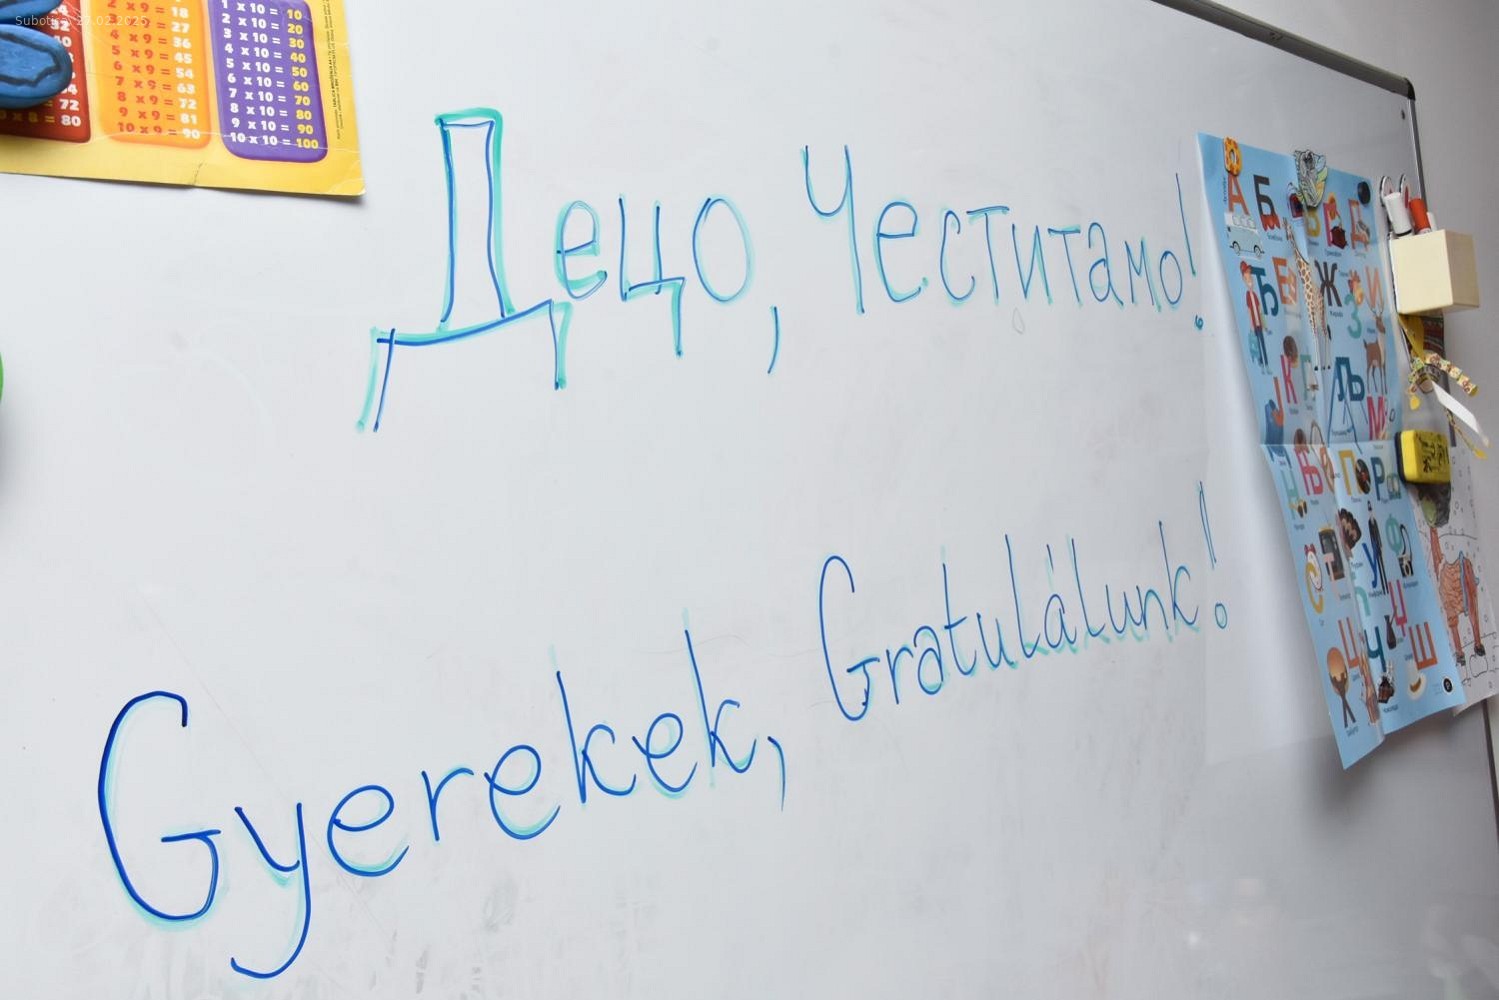 Subotica, 27.02.2025
2 x 9 = 18
3 x 9 = 27
4 x 9 = 36
5 x 9 = 45
6 x 9 = 54
7 x 9 = 63
8 x 9 = 72
9 x 9 = 81
10 x 9 = 90
1 x 10 = 10
2 x 10 = 20
3 x 10 = 30
4 x 10 = 40
5 x 10 = 50
6 x 10 = 60
7 x 10 = 70
8 x 10 = 80
9 x 10 = 90
10 x 10 = 100
72
x 8 = 80
Децо, Честитамо!
Gyerekek, Gratulálunk!
А Б В Г Д
Ђ Е Ж З И
К Љ М
Њ П Р
У Ф
Ц Ч Џ Ш